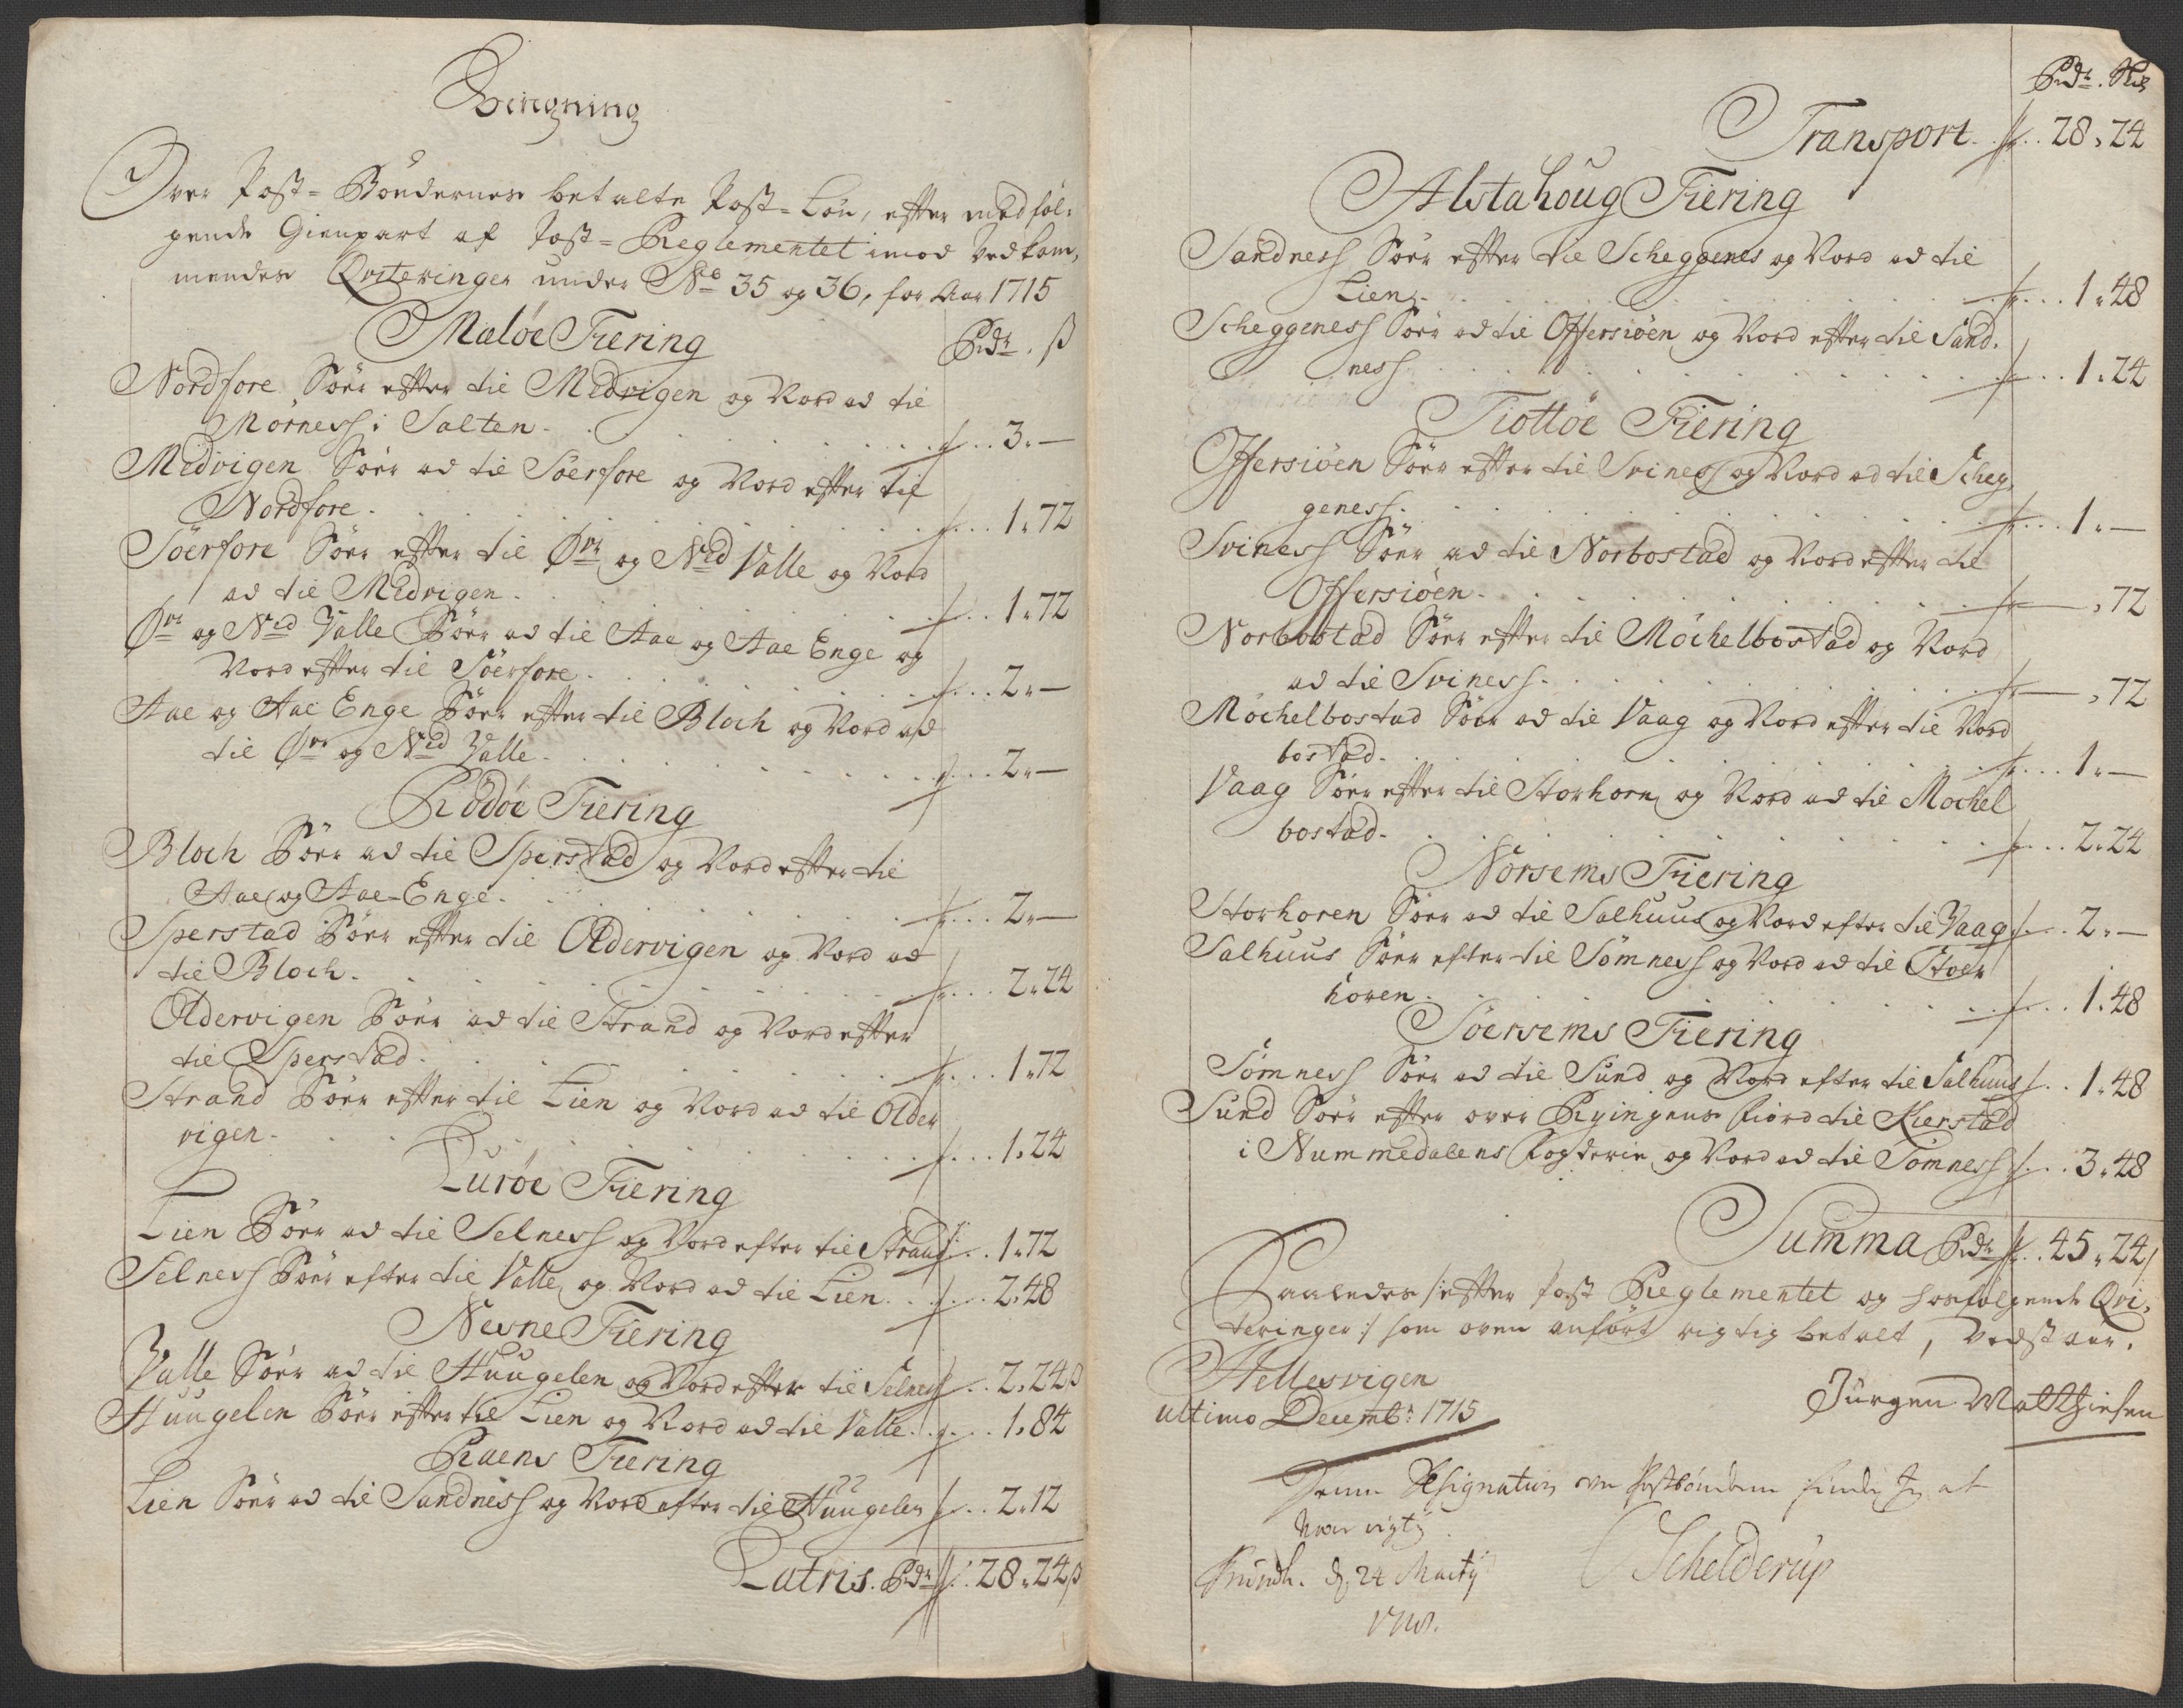 Beregning
Over Post-Böndernes betalte Post-Lön, efter medföl-
gende Gienpart af Post-Reglementet imod vedkom,
mendes Qvitteringer under No 35 og 36, for Aar 1715
Meløe Fiering
Rdr. ß
Nordfore Söer efter til Medvigen og Nord ad til
Mörness i Salten . . . 3. —
Medvigen Söer ad til Söerfore og Nord efter til
Nordfore . . . 1. 72
Söerfore Söer efter til Øvr og Ned Valle og Nord
ad til Medvigen . . . 1. 72
Øvr og Ned Valle Söer ad til Aae og Aae Enge og
Nord efter til Söerfore . . . 2. —
Aae og Aae Enge Söer efter til Bloch og Nord ad
til Øvr og Ned Valle . . . 2. —
Rödöe Fiering
Bloch Söer ad til Sperstad og Nord efter til
Aae og Aae-Enge . . . 2. —
Sperstad Söer efter til Oldervigen og Nord ad
til Bloch . . . 2. 24
Oldervigen Söer ad til Strand og Nord efter
til Sperstad . . . 1. 72
Strand Söer efter til Lien og Nord ad til Older
vigen . . . 1. 24
Luröe Fiering
Lien Söer ad til Selness og Nord efter til Strand . . 1. 72
Selness Söer efter til Valle og Nord ad til Lien . . . 2. 48
Nesne Fiering
Valle Söer ad til Huugelen og Nord efter til Selness . . 2. 24 ß
Huugelen Söer efter til Lien og Nord ad til Valle . . . 1. 84
Raens Fiering
Lien Söer ad til Sandness og Nord efter til Huugelen . . 2. 12
Latris. Rdr . . 28. 24 ß
Rdr. Sk
Transport . . 28. 24
Alstahoug Fiering
Sandness Söer efter til Scheggenes og Nord ad til
Lien . . . 1. 48
Scheggeness Söer ad til Offersiöen og Nord efter til Sand-
ness . . . 1. 24
Tiottöe Fiering
Offersiöen Söer efter til Sviness og Nord ad til Scheg,
geness . . . 1. —
Sviness Söer ad til Norbostad og Nord efter til
Offersiöen . . . — . 72
Norbostad Söer efter til Möchelbostad og Nord
ad til Sviness . . . — . 72
Möchelbostad Söer ad til Vaag og Nord efter til Nord
bostad . . . 1. —
Vaag Söer efter til Storhorn og Nord ad til Möchel
bostad . . . 2. 24
Norsems Fiering
Storhoren Söer ad til Salhuus og Nord efter til Vaag . . . 2. —
Salhuus Söer efter til Sömness og Nord ad til Stoer
horen . . . 1. 48
Söersems Fiering
Sömness Söer ad til Sund og Nord efter til Salhuus . . 1. 48
Sund Söer efter over Byingens fiord til Kierstad
i Nummedalens fogderie og Nord ad til Sömness . . . 3. 48
Summa Rdr . . 45. 24
Saaledes /: efter Post Reglementet og hosfölgende Qvi-
teringer :/ som oven anfört rigtig betalt, Vedstaar.
Hellesvigen
ultimo Decembr: 1715
Jürgen Matthiesen
Denne Designation over Postböndern findes at
være rigtig
d. 24 Martij
Schelderup